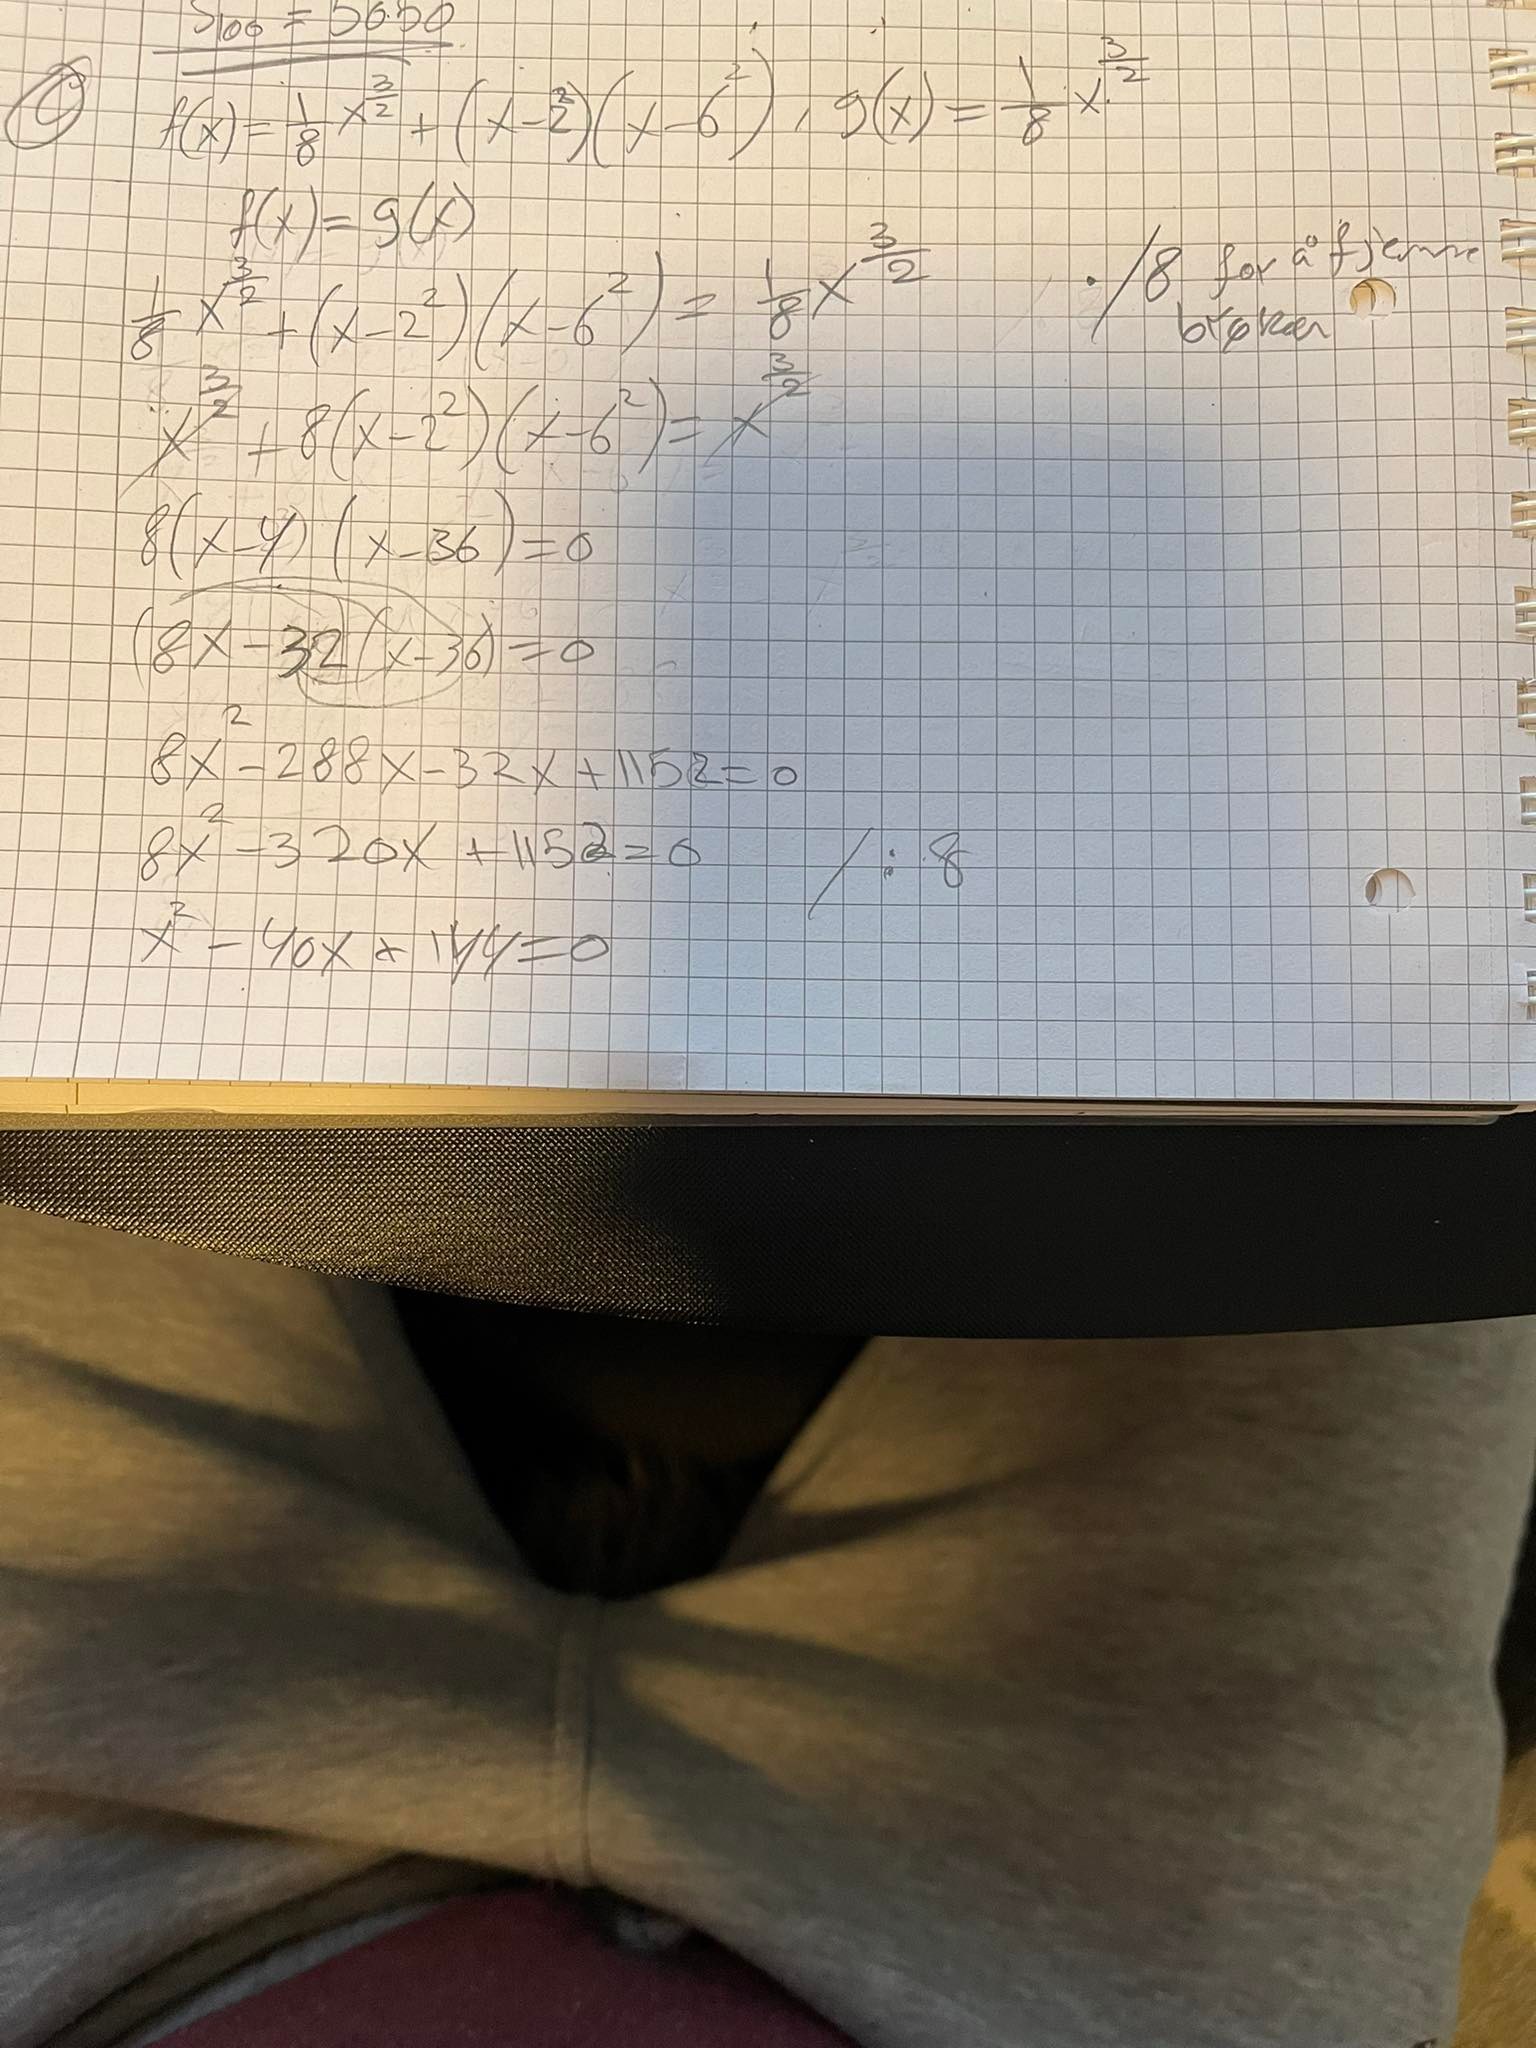 S₁₀₀ = 5050
f(x) = 1/8 x^(3/2) + (x-2²)(x-6²), g(x) = 1/8 x^(3/2)
f(x) = g(x)
1/8 x^(3/2) + (x-2²)(x-6²) = 1/8 x^(3/2) ·/8 for å fjerne
brøken
x^(3/2) + 8(x-2²)(x-6²) = x^(3/2)
8(x-4)(x-36) = 0
(8x-32(x-36) = 0
8x² - 288x - 32x + 1152 = 0
8x² - 320x + 1152 = 0 / : 8
x² - 40x + 144 = 0